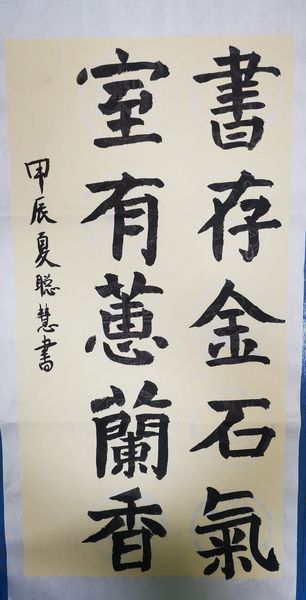 書存金石氣
室有蕙蘭香
甲辰夏聪慧書